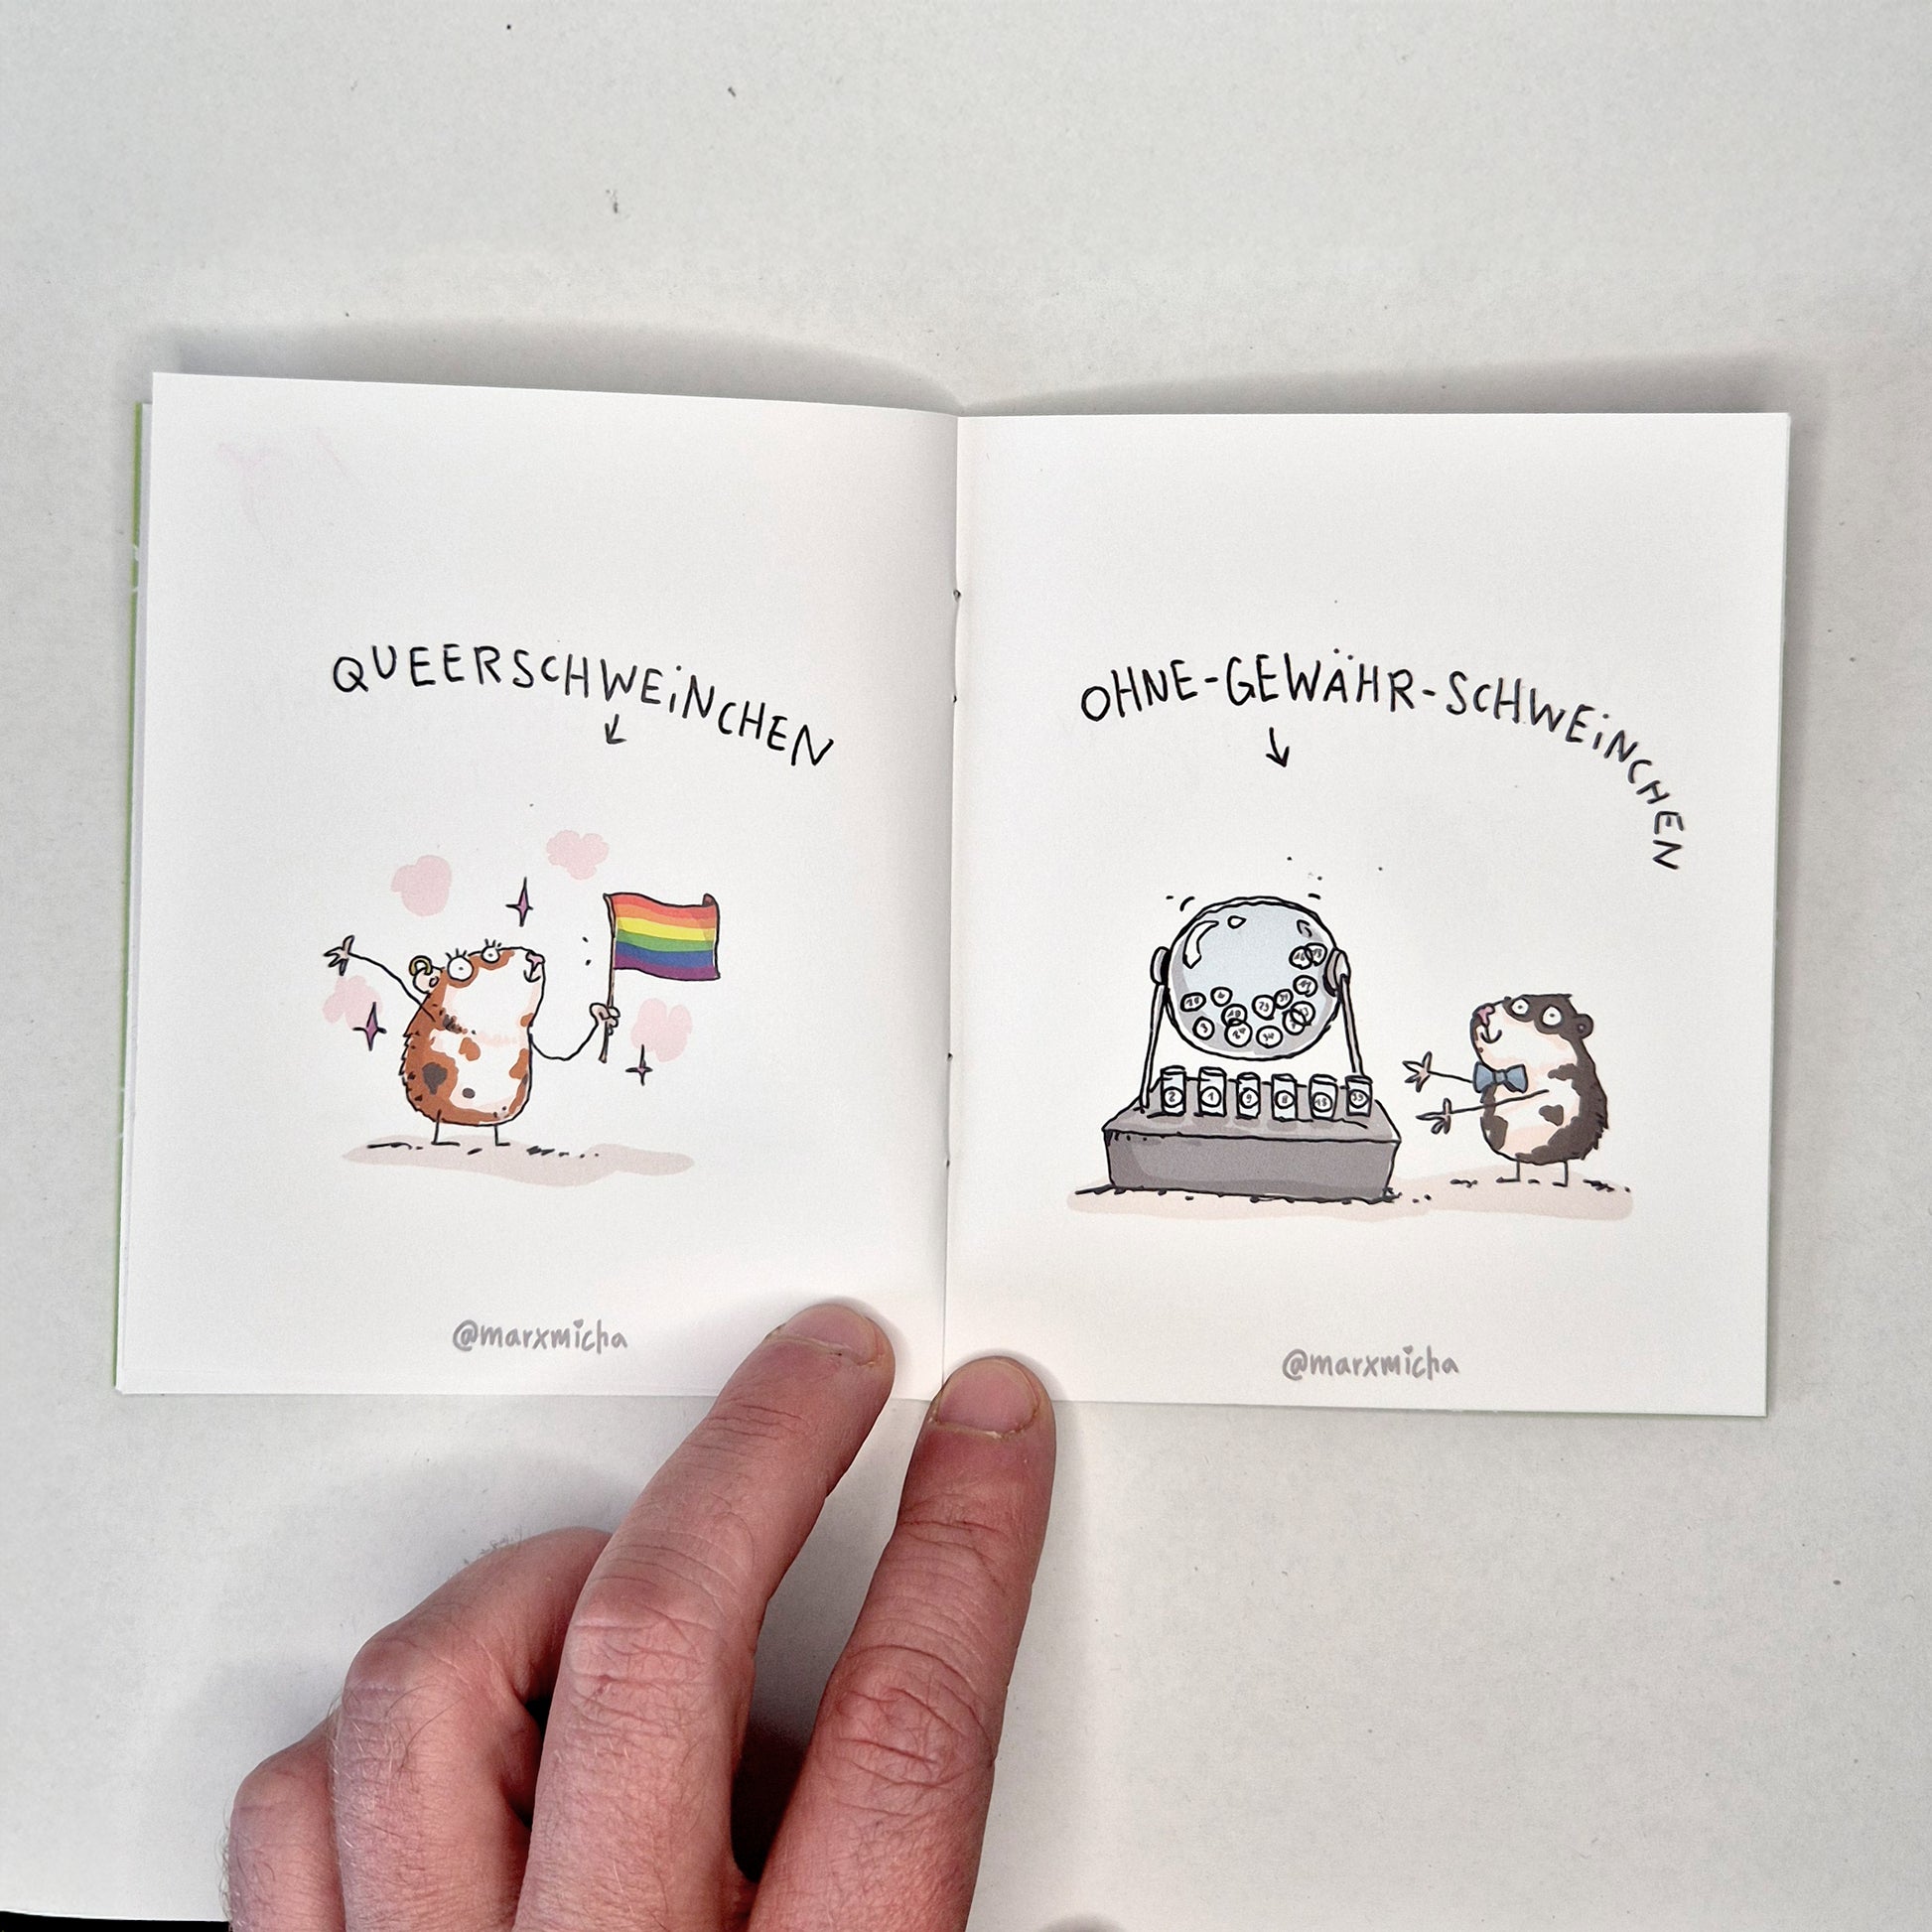 QUEERSCHWEiNCHEN
@marxmicha
OHNE-GEWÄHR-SCHWEiNCHEN
@marxmicha